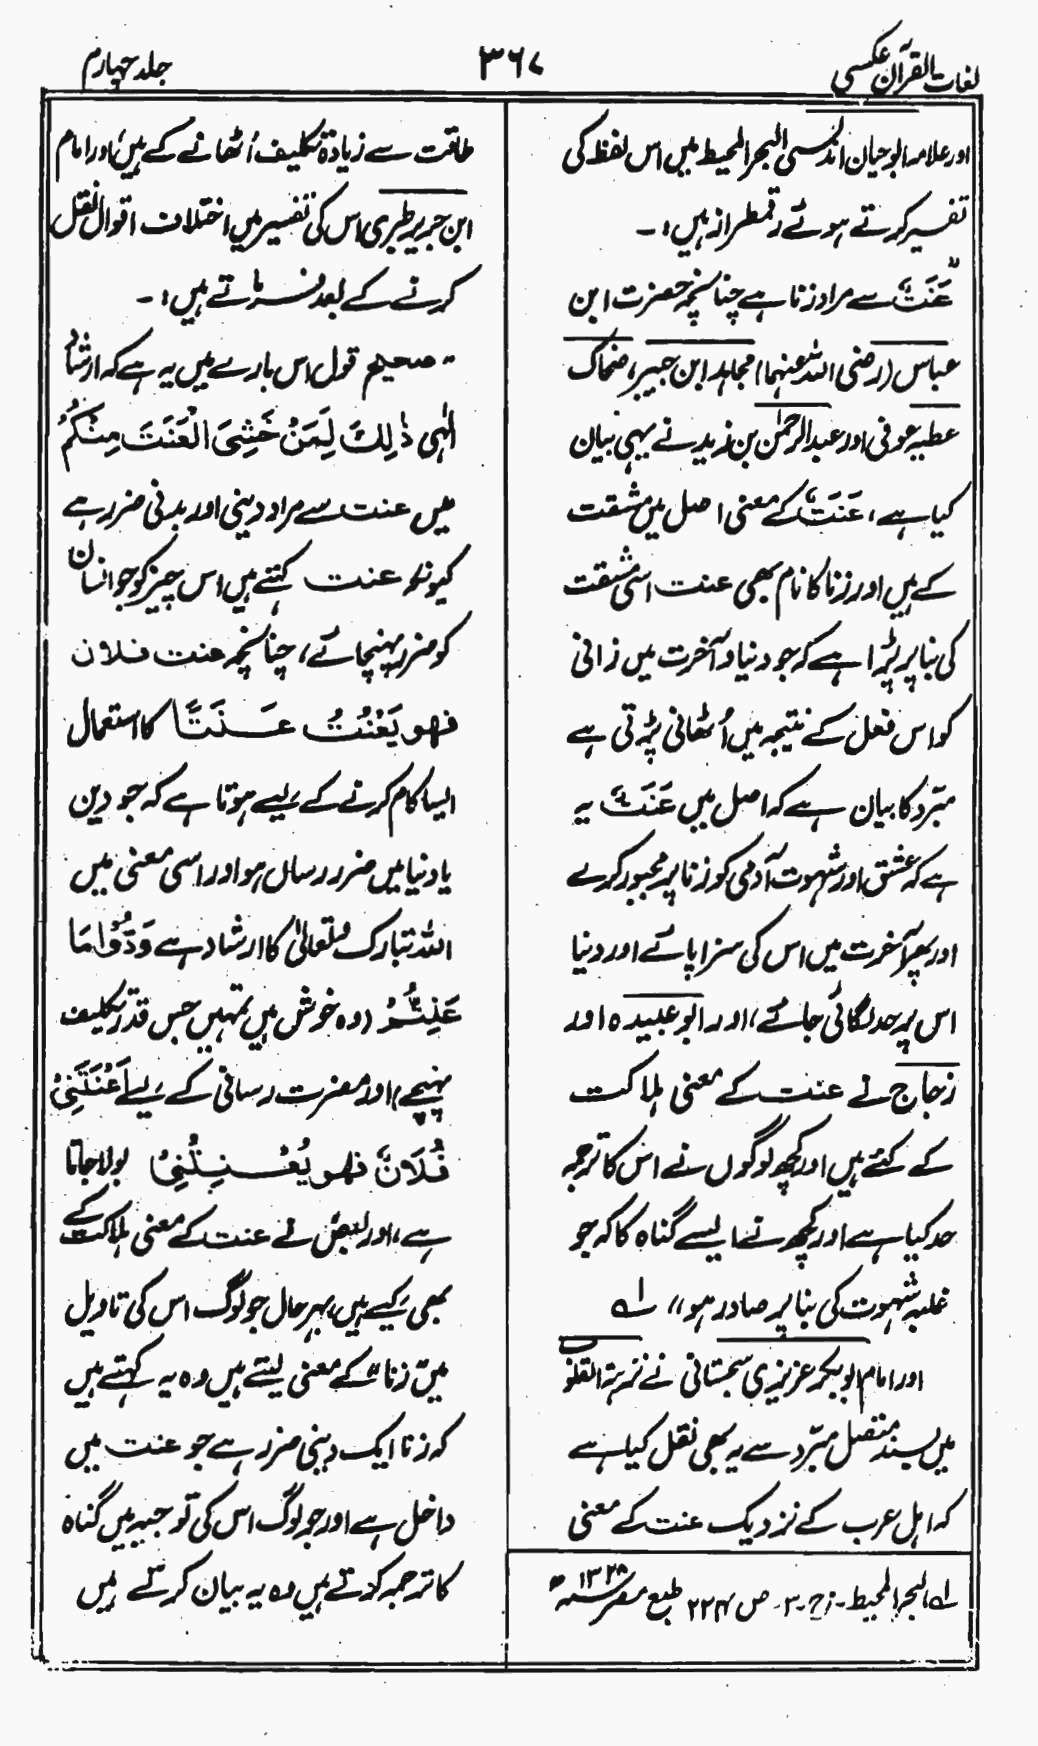 لغات القرآن عکسی
۳۶۷
جلد چہارم
اور علامہ ابو حیان اندلسی البحر المحیط میں اس لفظ کی
تفسیر کرتے ہوئے رقمطراز ہیں :۔
” عَنَتٌ سے مراد زنا ہے چنانچہ حضرت ابن
عباس (رضی اللہ عنہما) مجاہد ابن جبیر، ضحاک
عطیہ عوفی اور عبدالرحمٰن بن زید نے یہی بیان
کیا ہے، عَنَتٌ کے معنی اصل میں مشقت
کے ہیں اور زنا کا نام بھی عنت اسی مشقت
کی بنا پر پڑا ہے کہ جو دنیا و آخرت میں زانی
کو اس فعل کے نتیجہ میں اُٹھانی پڑتی ہے
مبرّد کا بیان ہے کہ اصل میں عَنَتٌ یہ
ہے کہ عشق اور شہوت آدمی کو زنا پر مجبور کرے
اور پھر آخرت میں اس کی سزا پائے اور دنیا
اس پر حد لگائی جائے، اور ابو عبیدہ اور
زجاج نے عنت کے معنی ہلاکت
کے کئے ہیں اور کچھ لوگوں نے اس کا ترجمہ
حد کیا ہے اور کچھ نے ایسے گناہ کا کہ جو
غلبہ شہوت کی بنا پر صادر ہو،، لہ
اور امام ابوبکر عزیزی سجستانی نے نزہۃ القلوب
میں بسند متصل مبرّد سے یہ بھی نقل کیا ہے
کہ اہل عرب کے نزدیک عنت کے معنی
لہ البحر المحیط۔ ج۔۳۔ ص ۲۲۴ طبع مصر ۱۳۲۸ھ
طاقت سے زیادہ تکلیف اُٹھانے کے ہیں، اور امام
ابن جریر طبری اس کی تفسیر میں اختلاف اقوال نقل
کرنے کے بعد فرماتے ہیں :۔
” صحیح قول اس بارے میں یہ ہے کہ ارشاد
الٰہی ذٰلِكَ لِمَنْ خَشِيَ الْعَنَتَ مِنْكُمْ
میں عنت سے مراد دینی اور بدنی ضرر ہے
کیونکہ عنت کہتے ہیں اس چیز کو جو انسان
کو ضرر پہنچائے، چنانچہ عنت فلان
فهو يَعْنَتُ عَنَتًا کا استعمال
ایسا کام کرنے کے لیے ہوتا ہے کہ جو دین
یا دنیا میں ضرر رساں ہو اور اسی معنی میں
اللہ تبارک وتعالیٰ کا ارشاد ہے وَدُّوْا مَا
عَنِتُّمْ (وہ خوش ہیں تمہیں جس قدر تکلیف
پہنچے) اور مضرت رسانی کے لیے اَعْنَتَنِيْ
فُلَانٌ فهو يُعْنِتُنِيْ بولا جاتا
ہے، اور بعض نے عنت کے معنی ہلاکت کے
بھی کیے ہیں، بہرحال جو لوگ اس کی تاویل
میں زنا کے معنی لیتے ہیں وہ یہ کہتے ہیں
کہ زنا ایک دینی ضرر ہے جو عنت میں
داخل ہے اور جو لوگ اس کی توجیہ میں گناہ
کا ترجمہ کرتے ہیں وہ یہ بیان کرتے ہیں